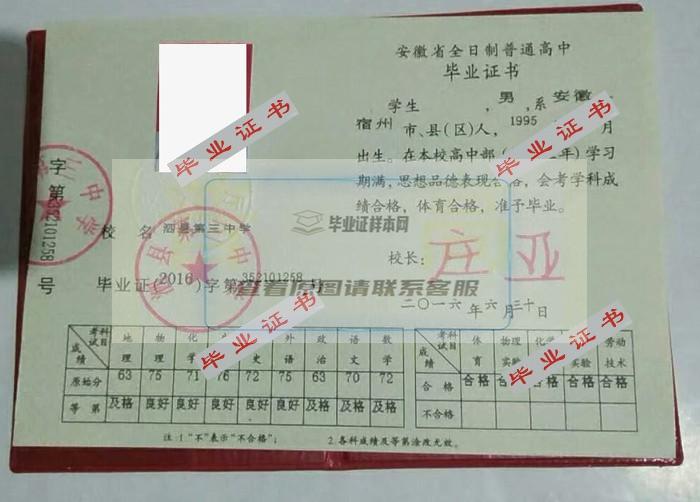 安徽省全日制普通高中
毕业证书
学生 ,男,系安徽
宿州市、县(区)人, 1995 月
出生。在本校高中部( 年)学习
期满,思想品德表现合格,会考学科成
绩合格,体育合格,准予毕业。
校长: 庄亚
二〇一六年六月三十日
校名 泗县第三中学
毕业证(2016)字第352101258号
字第352101258号
泗县第三中学
毕业证样本网
查看原图请联系客服
毕业证书
毕业证书
毕业证书
毕业证书
毕业证书
考试科目 地理 物理 化学 史 外语 政治 语文 数学
成绩
原始分 63 75 71 76 72 75 63 70 72
等第 及格 良好 良好 良好 良好 良好 及格 及格 良好
考试科目 体育 物理实验 化学 实验 劳动技术
成绩
合格 合格 合格 合格 合格 合格
不合格
注:1."不"表示"不合格"; 2.各科成绩及等第涂改无效。